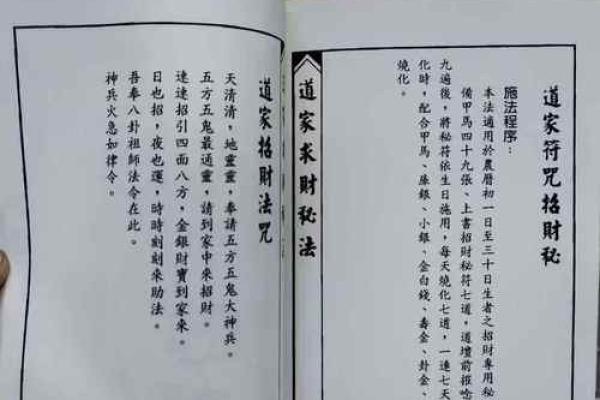 道家符咒招財秘
施法程序：
本法適用於農曆初一日至三十日生者之招財專用秘
備甲馬四十九張、上書招財秘符七道，道壇前招唸
九遍後，將秘符依生日施用，每天燒化七道，一連七天
化時，配合甲馬、庫銀、小銀、金白錢、壽金、卦金、
燒化。
道家求財秘法
道家招財法咒
天清清，地靈靈，奉請五方五鬼大神兵。
五方五鬼最通靈，請到家中來招財。
速速招引四面八方，金銀財寶到家來。
日也招，夜也運，時時刻刻來助法。
吾奉八卦祖師法令在此。
神兵火急如律令。